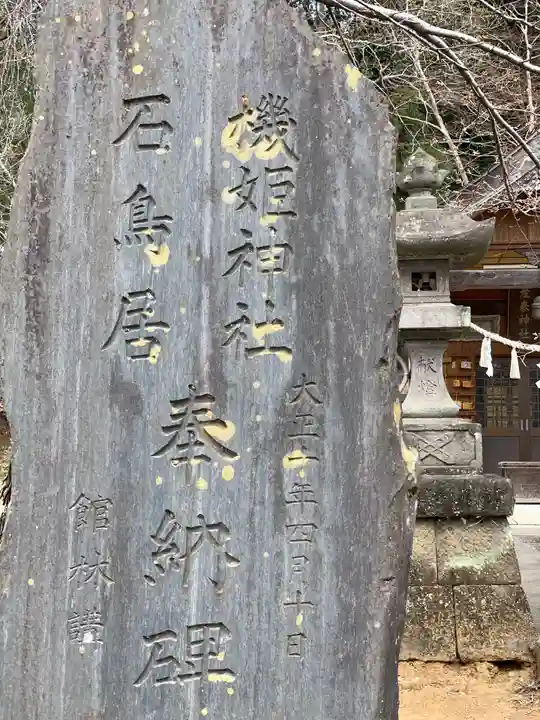 機姫神社
石鳥居
奉納碑
大正十年四月十日
館林講
献燈